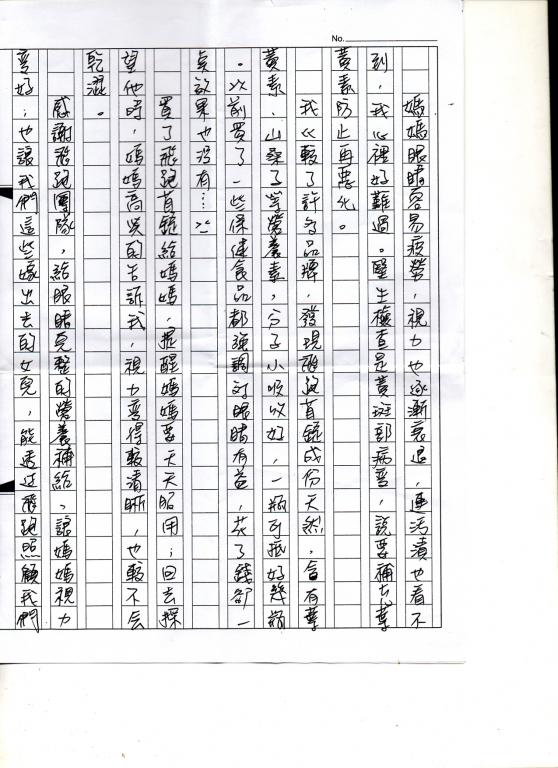 No.
媽媽眼睛容易疲勞，視力也逐漸衰退，連污漬也看不
到，我心裡好難過。醫生檢查是黃斑部病變，說要補充葉
黃素防止再惡化。
我比較了許多品牌，發現飛跑首錠成份天然，含有葉
黃素、山桑子等營養素，分子小吸收好，一瓶可抵好幾瓶
。以前買了一些保健食品都強調對眼睛有益，花了錢卻一
點效果也沒有…
買了飛跑首錠給媽媽，提醒媽媽要天天服用；回去探
望他時，媽媽高興的告訴我，視力變得較清晰，也較不會
乾澀。
感謝飛跑團隊，給眼睛完整的營養補給，讓媽媽視力
變好；也讓我們這些嫁出去的女兒，能透過飛跑照顧我們